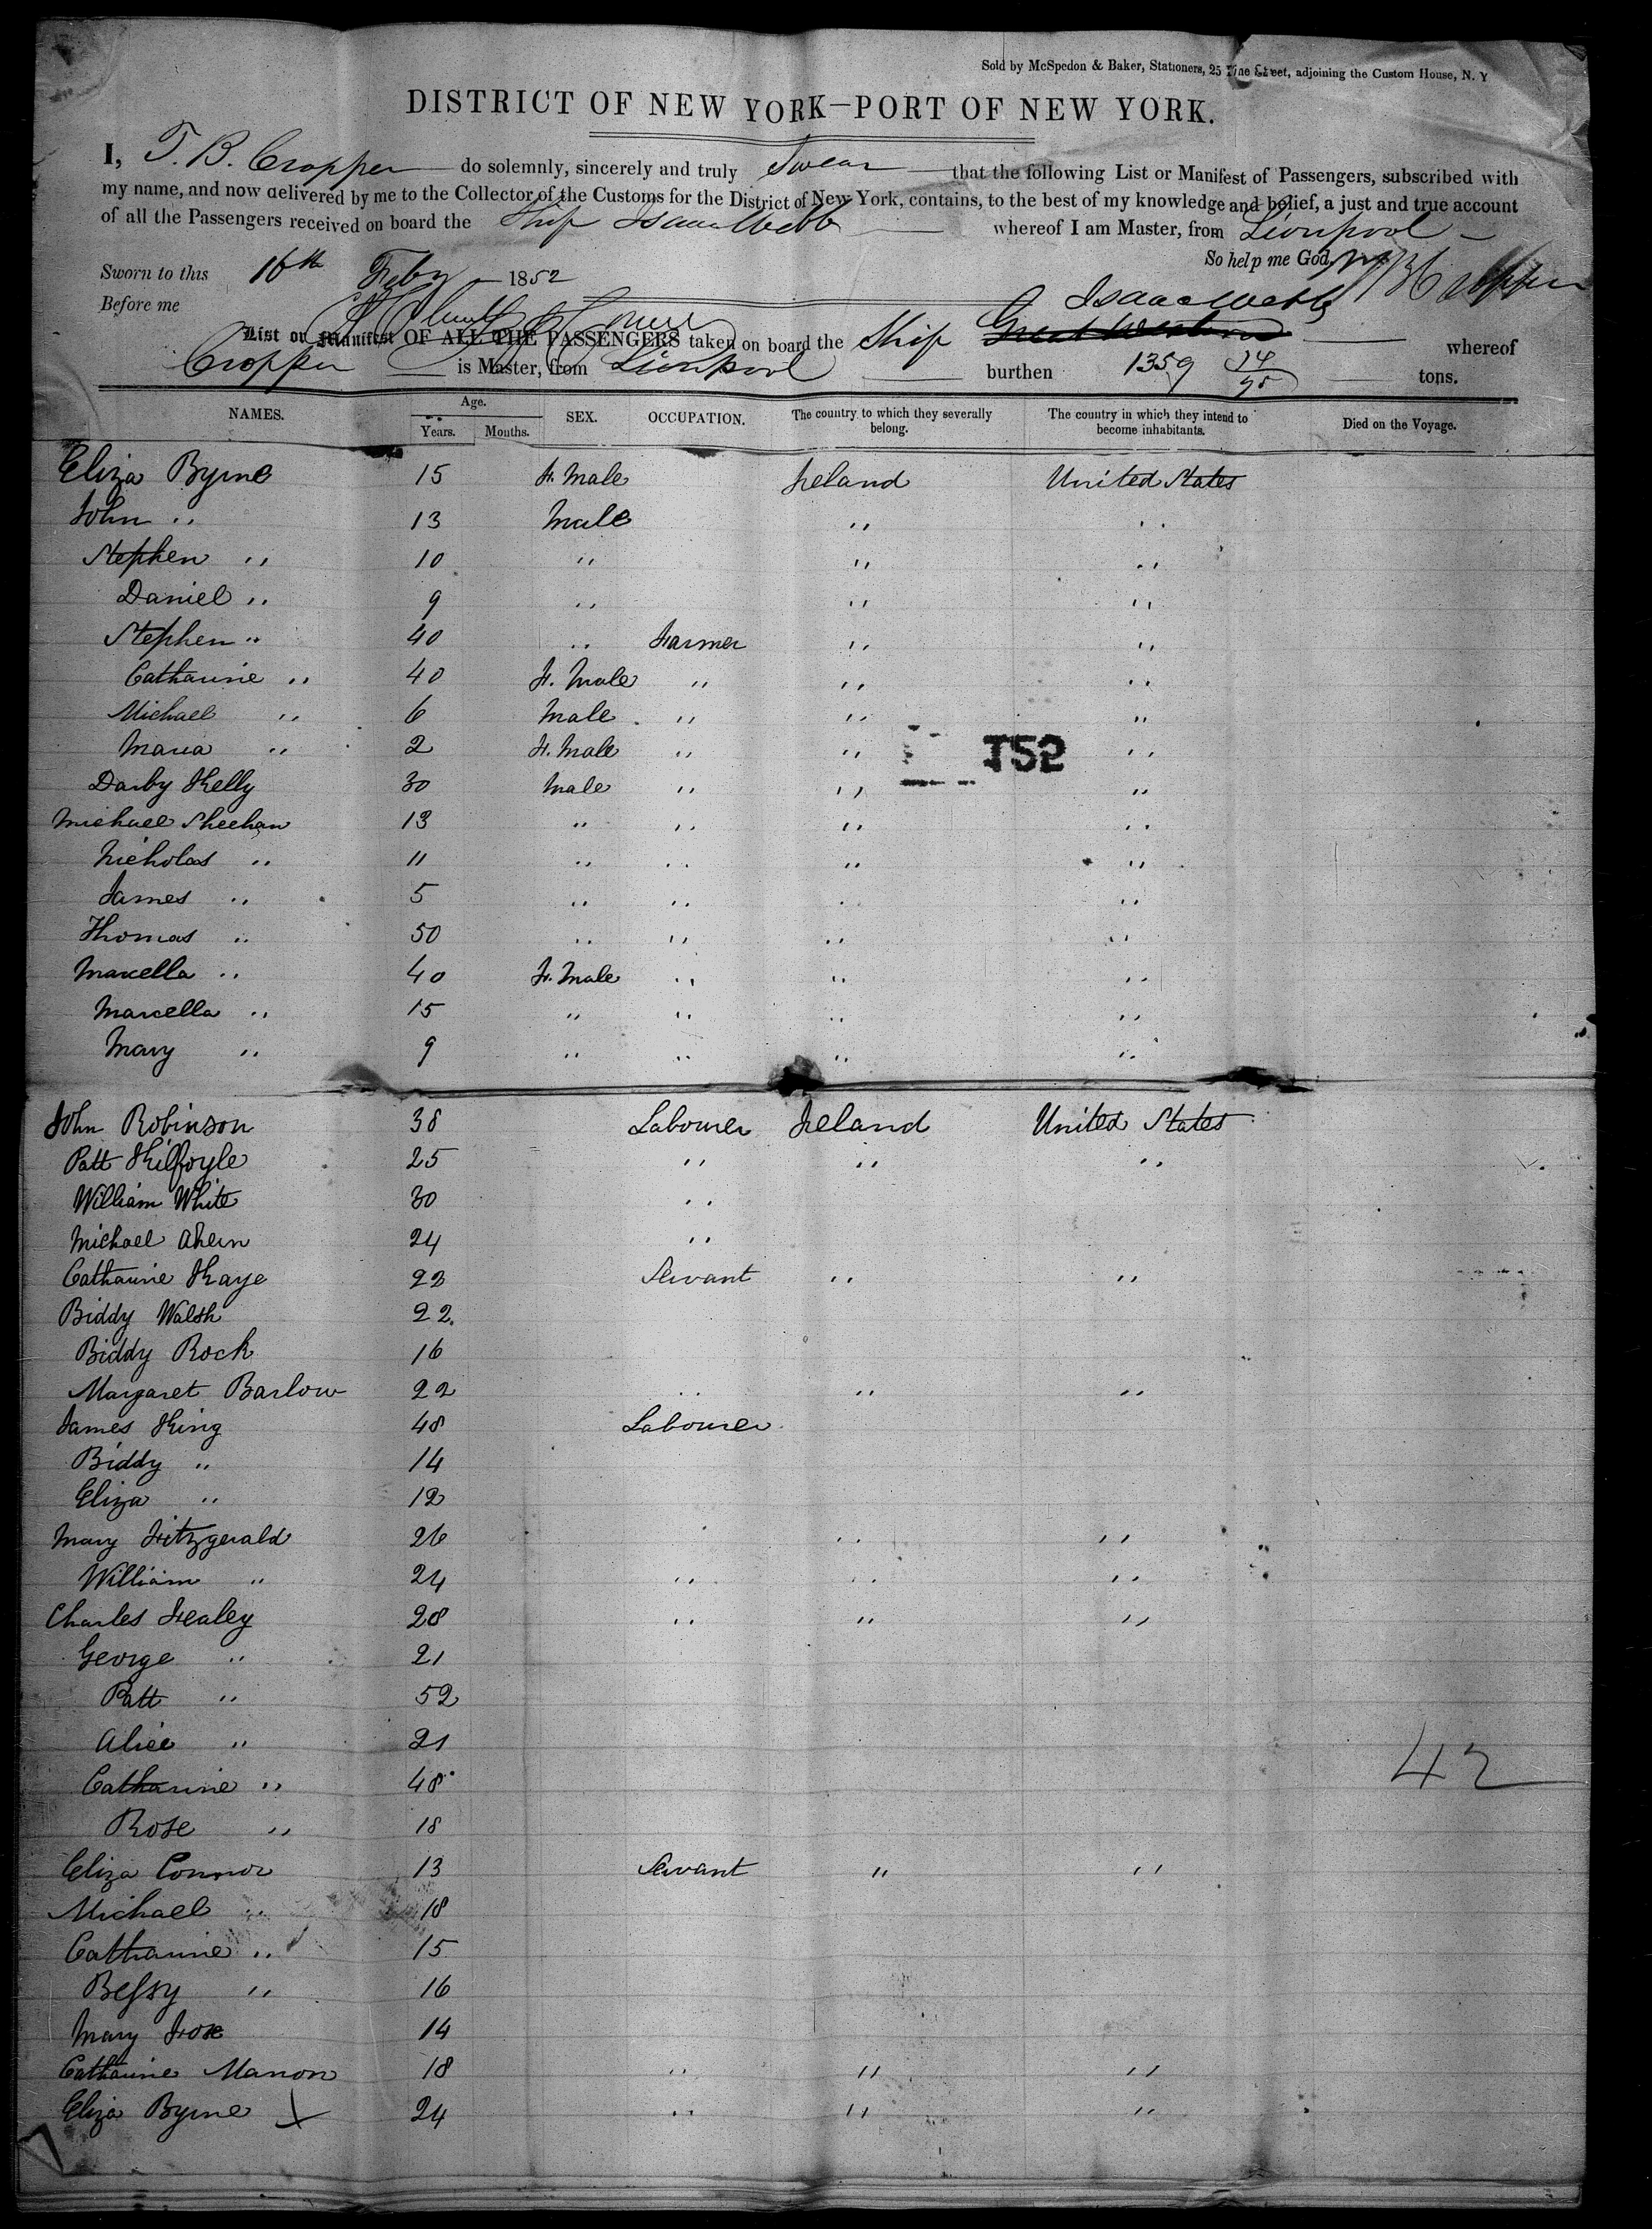 Sold by McSpedon & Baker, Stationers, 25 Pine Street, adjoining the Custom House, N. Y
DISTRICT OF NEW YORK—PORT OF NEW YORK.
I, T. B. Cropper do solemnly, sincerely and truly Swear that the following List or Manifest of Passengers, subscribed with
my name, and now delivered by me to the Collector of the Customs for the District of New York, contains, to the best of my knowledge and belief, a just and true account
of all the Passengers received on board the Ship Isaac Webb whereof I am Master, from Liverpool
So help me God,
Sworn to this 16th Feby 1852 T B Cropper
Before me
Isaac Webb
List or Manifest OF ALL THE PASSENGERS taken on board the Ship Great Western whereof
Cropper is Master, from Liverpool burthen 1359 tons.
NAMES. Age. Years. Months. SEX. OCCUPATION. The country to which they severally belong. The country in which they intend to become inhabitants. Died on the Voyage.
Eliza Byrne 15 F. Male Ireland United States
John " 13 Male " "
Stephen " 10 " " "
Daniel " 9 " " "
Stephen " 40 " Farmer " "
Catharine " 40 F. Male " " "
Michael " 6 Male " " "
Maria " 2 F. Male " " "
152
Darby Kelly 30 Male " " "
Michael Sheehan 13 " " " "
Nicholas " 11 " " " "
James " 5 " " " "
Thomas " 50 " " " "
Marcella " 40 F. Male " " "
Marcella " 15 " " " "
Mary " 9 " " " "
John Robinson 38 Labourer Ireland United States
Patt Kilfoyle 25 " " "
William White 30 "
Michael Ahern 24 "
Catharine Kaye 22 Servant " "
Biddy Walsh 22.
Biddy Rock 16
Margaret Barlow 22 " " "
James King 48 Labourer
Biddy " 14
Eliza " 12
Mary Fitzgerald 26 " "
William " 24 " " "
Charles Fealey 28 " " "
George " 21
Patt " 52
Alice " 21
42
Catharine " 48
Rose " 18
Eliza Connor 13 Servant " "
Michael " 18
Catharine " 15
Bessy " 16
Mary Fox 14
Catharine Manon 18 " " "
Eliza Byrne 24 " " "